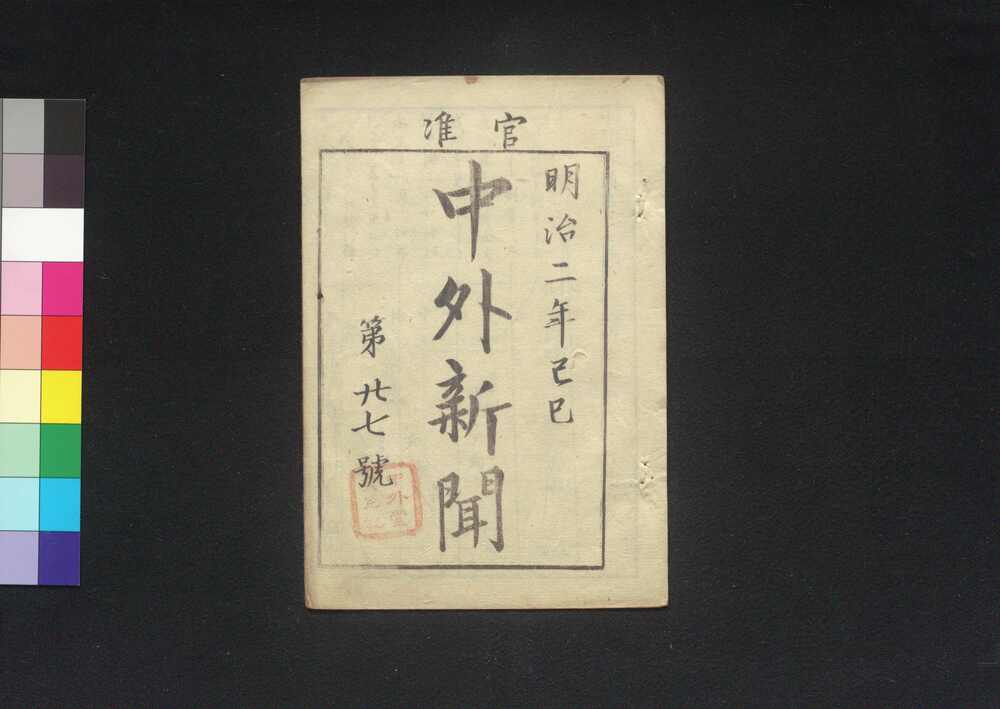 官准
明治二年己巳
中外新聞
第廿七號
中外堂